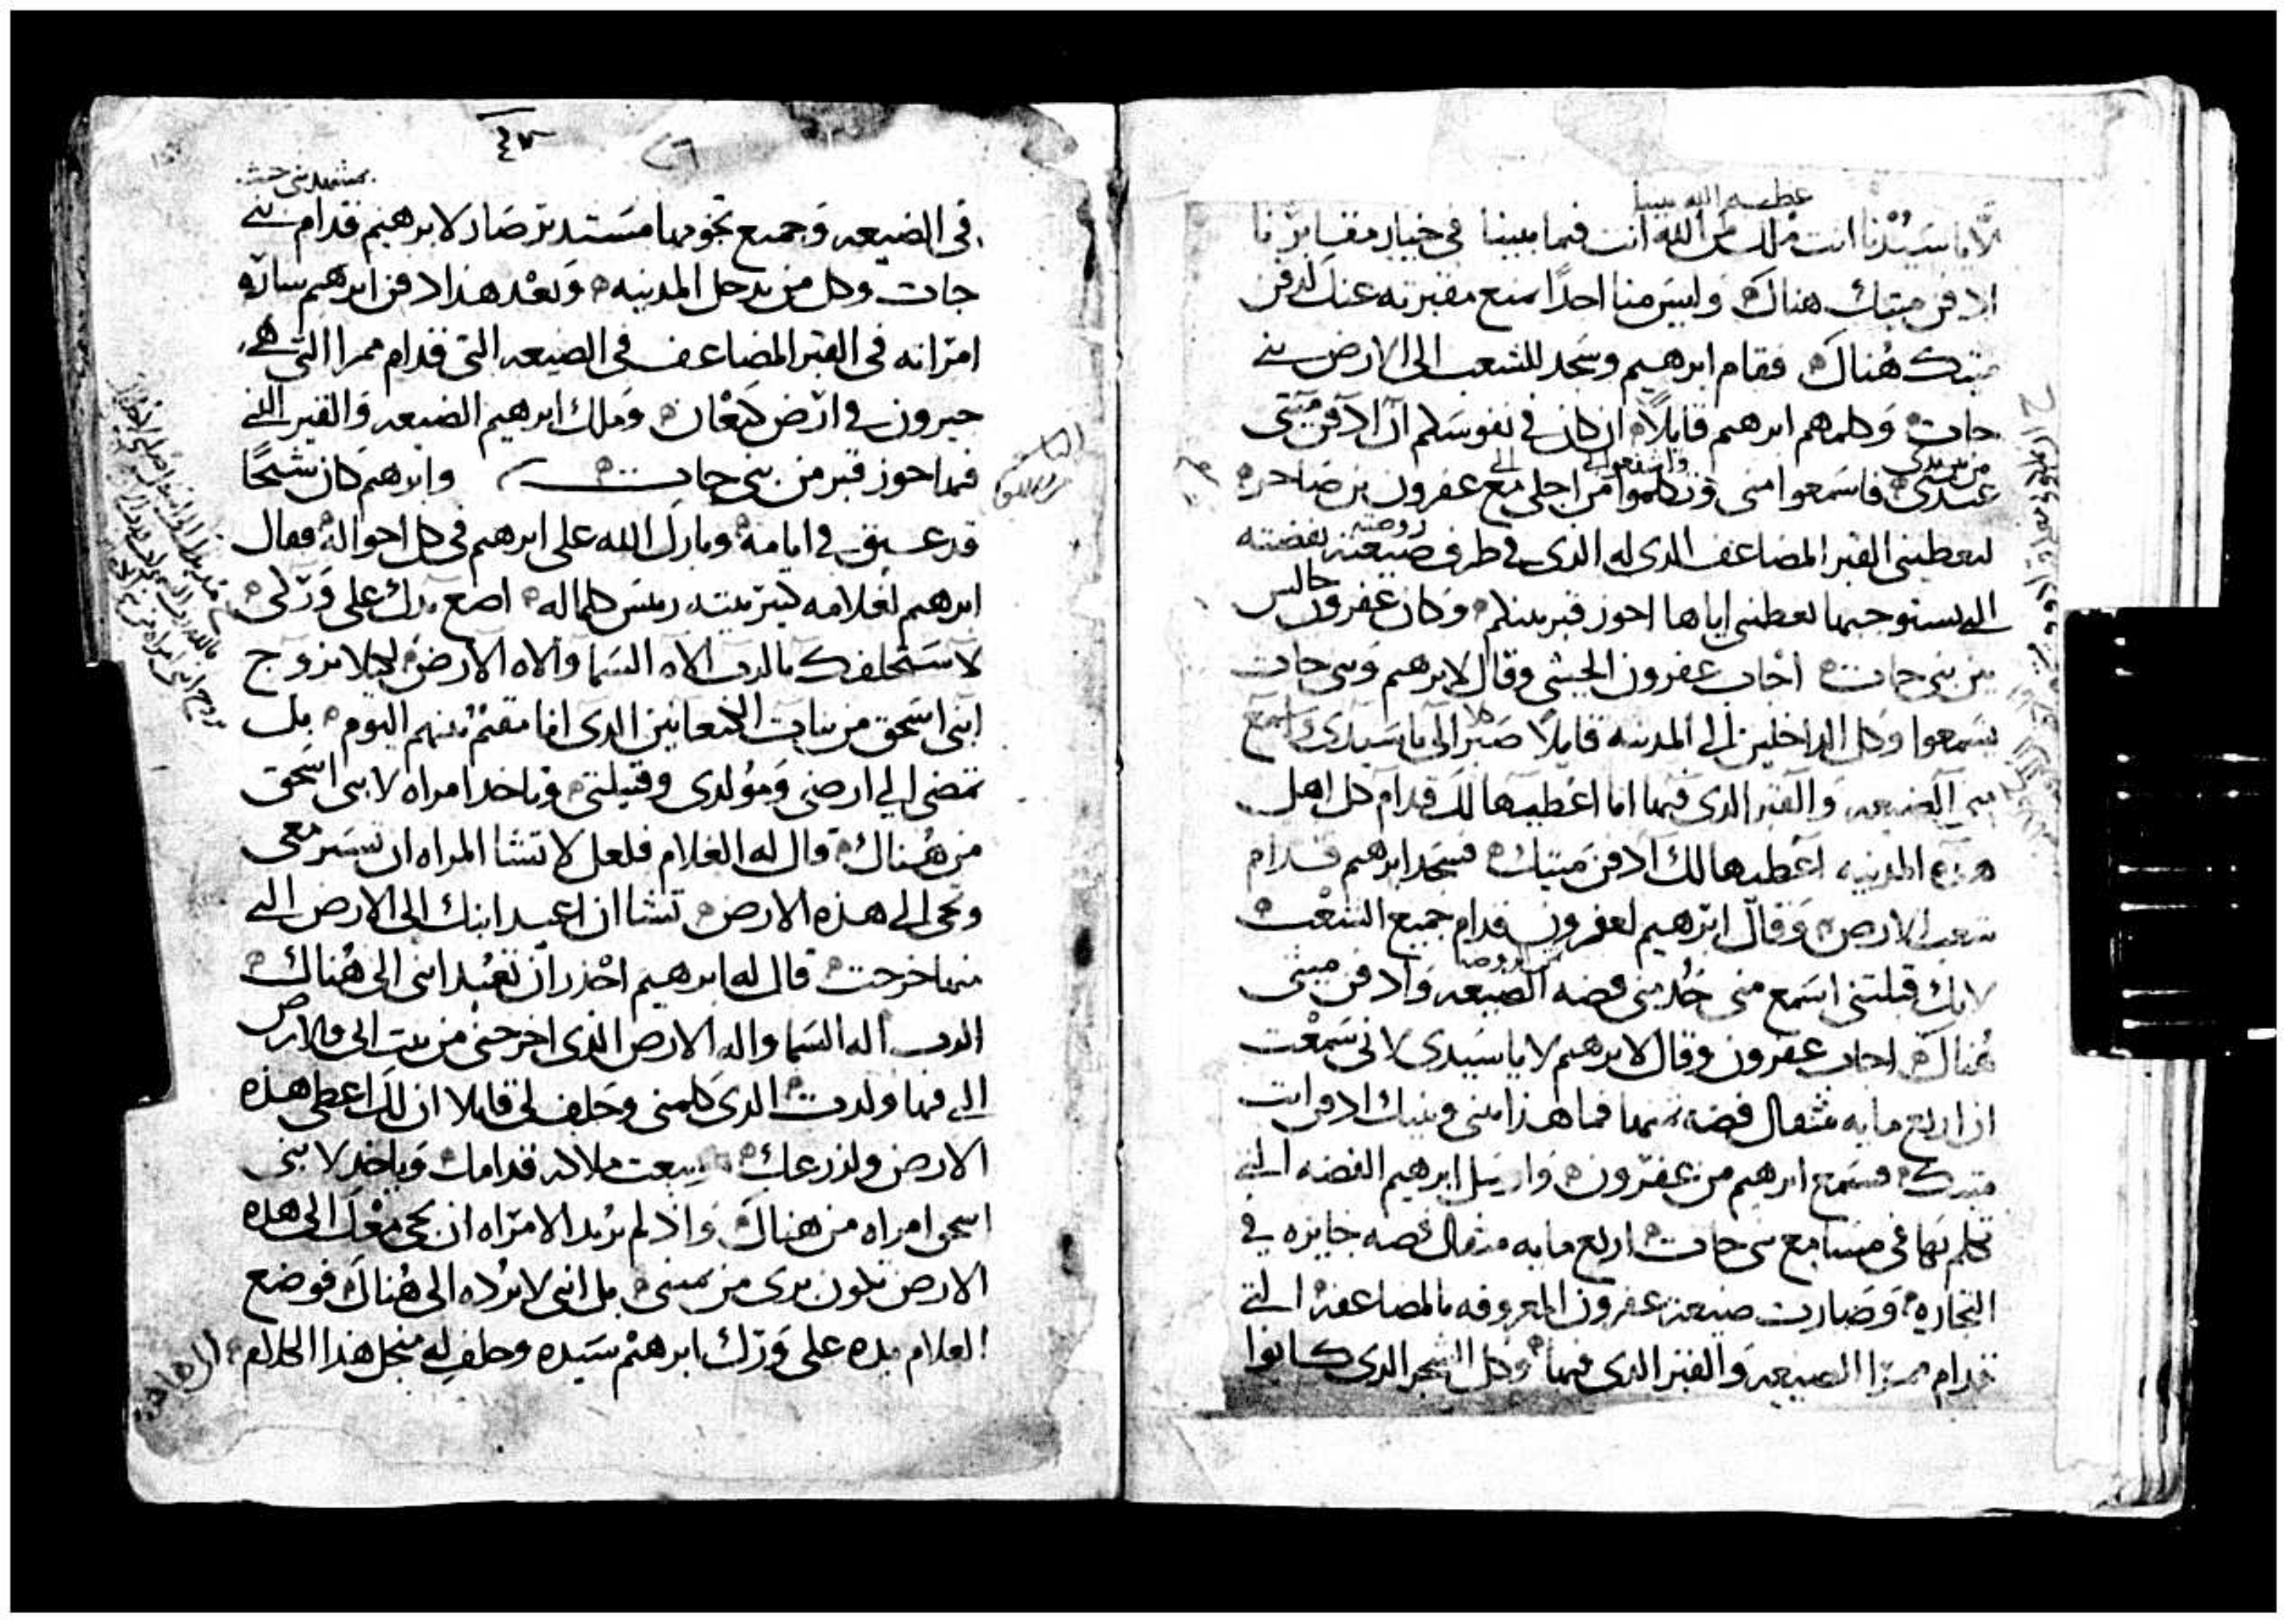 عظيم الله بيننا
لا يا سيدنا انت ملك من الله انت فيما بيننا في خيار مقابرنا
ادفن ميتك هناك وليس منا احدا يمنع مقبرته عنك لتدفن
ميتك هناك فقام ابرهيم وسجد للشعب الى الارض بني
حات وكلمهم ابرهم قايلا ان كان في نفوسكم ان ادفن ميتي
من بين يدي
عندي فاسمعوا مني وتكلموا من اجلي مع عفرون بن صاحر
ليعطيني القبر المضاعف الذي له الذي في طرف ضيعته بفضته
التي يستوجبها يعطني اياها احوز قبر بينكم وكان عفرون جالس
بين بني حات اجاب عفرون الحيثي وقال لابرهم وبني حات
يسمعوا وكل الداخلين الى المدينه قايلا صر الي يا سيدي واسمع
مني الضيعه والقبر الذي فيها انا اعطيها لك قدام كل اهل
هذه المدينه اعطيها لك ادفن ميتك فسجد ابرهم قدام
شعب الارض وقال ابرهيم لعفرون قدام جميع الشعب
لانك قبلتني اسمع مني خذ مني فضه الضيعه وادفن ميتي
هناك اجاب عفرون وقال لابرهم لا يا سيدي لاني سمعت
ان اربع مايه مثقال فضه ثمنها فما هذا بيني وبينك ادفن انت
ميتك فسمع ابرهم من عفرون وارسل ابرهيم الفضه التي
تكلم بها في مسامع بني حات اربع مايه مثقال فضه جايزه في
التجاره وصارت ضيعة عفرون المعروفه بالمضاعفة التي
قدام ممرا الضيعه والقبر الذي فيها وكل الشجر الذي كانوا
٤٧
٢٦
في الضيعه وجميع تخومها مستديرة صار لابرهيم قدام بني
حات وكل من يدخل المدينه وبعد هذا دفن ابرهم ساره
امراته في القبر المضاعف في الضيعه التي قدام ممرا التي هي
حبرون في ارض كنعان وملك ابرهيم الضيعه والقبر الذي
فيها حوز قبر من بني حات وابرهم كان شيخا
قد عتيق في ايامه وبارك الله على ابرهم في كل احواله فقال
ابرهم لغلامه كبير بيته ريس كلما له اضع يدك على وركي
لاستحلفك بالرب الاه السما والاه الارض ليلا تزوج
ابني اسحق من بنات الكنعانيين الذي انا مقيم بينهم اليوم بل
تمضي الي ارضي ومولدي وقبيلتي وتاخذ امراه لابني اسحق
من هناك قال له الغلام فلعل لا تشا المراه ان تسير معي
وتجي الي هذه الارض تشا ان اعيد ابنك الى الارض التي
منها خرجت قال له ابرهيم احذر ان تعيد ابني الى هناك
الرب اله السما واله الارض الذي اخرجني من بيت ابي والارض
التي فيها ولدت الذي كلمني وحلف لي قايلا ان لك اعطي هذه
الارض ولزرعك يبعث ملاكه قدامك وياخذ لابني
اسحق امراه من هناك واذ لم تريد الامراه ان تجي معك الى هذه
الارض تكون بري من يميني بل ابني لا ترده الى هناك فوضع
الغلام يده على ورك ابرهم سيده وحلف له من اجل هذا الكلام